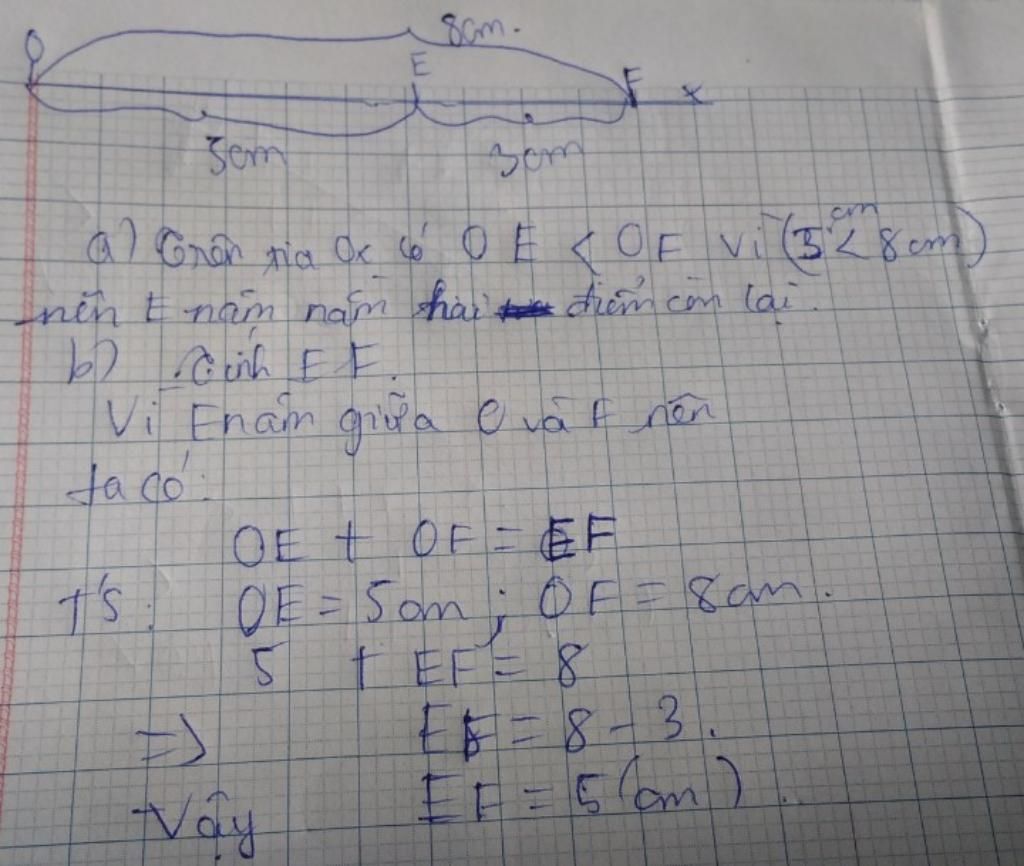 8cm.
O E F x
5cm 3cm
a) Trên tia Ox có OE < OF Vì (5cm < 8cm)
nên E nằm nằm hai điểm còn lại.
b) Tính EF.
Vì E nằm giữa O và F nên
ta có:
OE + OF = EF
T'S: OE = 5cm; OF = 8cm.
5 + EF = 8
=> EF = 8 - 3.
Vậy EF = 5 (cm).